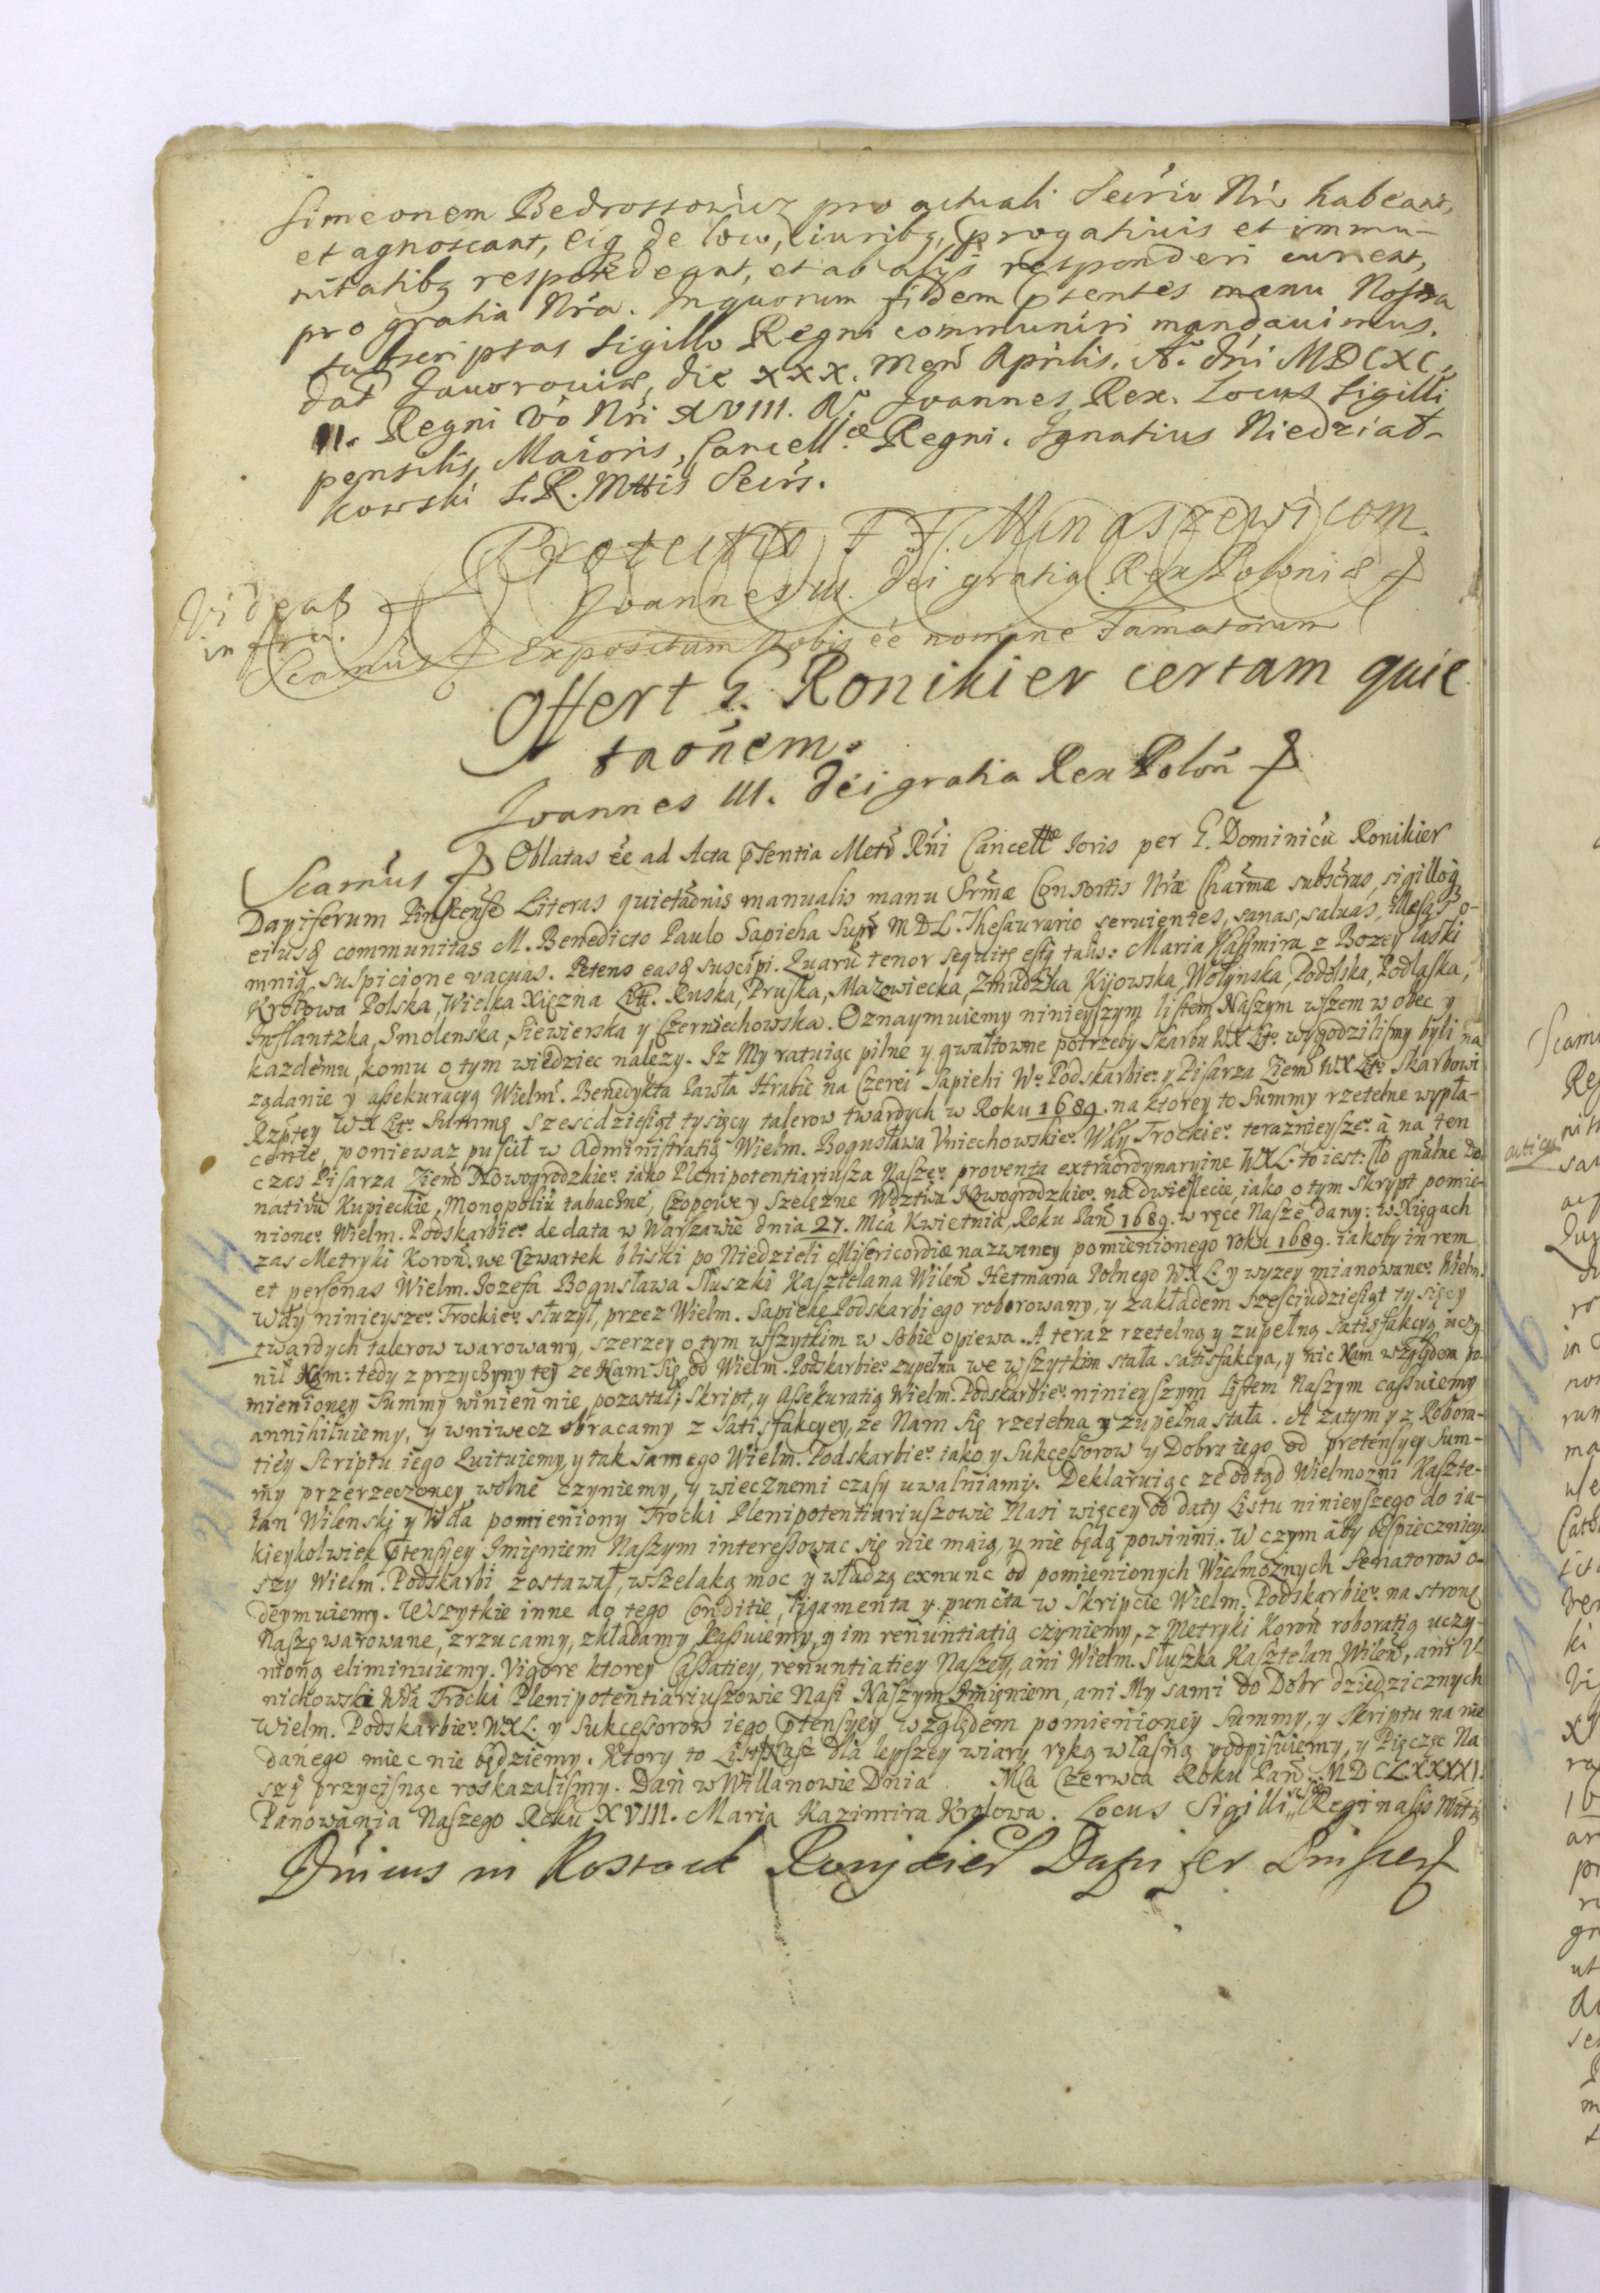 Simeonem Bedrossowicz pro actuali Secrio Nro habeant,
et agnoscant, eiq de loco, iuribq, progativis et immu-
nitatibq respondeant, et ab alijs responderi curent,
pro gratia Nra. In quorum fidem pntentes manu Nostra
subscriptas Sigillo Regni communiri mandavimus.
dat Javoroviae, die XXX. Men Aprilis. Ao Dni MDCXC
II. Regni vo Nri XVIII. Ao Joannes Rex. Locus Sigilli
pensilis, Maioris, Cancell.æ Regni. Ignatius Niedział-
kowski S. R. Mttis Secrs.
Protectio F F. Minaszewicom.
Videatr
infra.
Joannes III. Dei gratia Rex Poloniæ
Scamus Expositum Nobis ée nomine Famatorum
Offert G. Ronikier certam quie
taónem.
Joannes III. Dei gratia Rex Polon
Scamus Oblatas ée ad Acta pntentia Metr Rni Cancellæ Ioris per G. Dominicu Ronikier
Dapiferum Pinscense Literas quietaonis manualis manu Srmæ Consortis Nræ Charmæ subscras, sigilloq
eiusq communitas M. Benedicto Paulo Sapieha Supr MDL. Thesaurario servientes, sanas, salvas, illæsas, o-
mniq suspicione vacuas. Petens easq suscipi. Quaru tenor sequitr estq talis: Maria Kazimira z Bozey łaski
Krolowa Polska, Wielka Xięzna Litt. Ruska, Pruska, Mazowiecka, Zmudzka Kijowska, Wołynska, Podolska, Podlaska,
Inflantzka, Smolenska, Siewierska y Czerniechowska. Oznaymuiemy ninieyszym listem Naszym wszem w obec y
kazdemu, komu o tym wiedziec nalezy. Iz My ratuiąc pilne y gwałtowne potrzeby Skarbu WX Lto wygodzilismy byli na
ządanie y assekuracyą Wielm. Benedykta Pawła Hrabie na Czerei Sapiehi Wo Podskarbieo y Pisarza Ziem WX Lto Skarbowi
Rzptey WX Lto Summę szescdziesiąt tysięcy talerow twardych w Roku 1689. na ktorey to Summy rzetelne wypła-
cenie, poniewaz puscił w Administratią Wielm. Bogusława Vniechowskieo Wdy Trockieo teraznieyszeo à na ten
czas Pisarza Ziem Nowogrodzkieo iako Plenipotentiariusza Naszeo proventa extraordynaryine WXL. to iest: Cło gnalne Do-
nativu Kupieckie, Monopoliu tabaczne, Czopowe y Szelęzne Wdztwa Nowogrodzkieo na dwielecie, iako o tym skrypt pomie-
nioneo Wielm. Podskarbieo de data w Warszawie dnia 27. Mca Kwietnia, Roku Pan 1689. w ręce Nasze dany: w Xięgach
zas Metryki Koron. we Czwartek bliski po Niedzieli Misericordiæ nazwaney pomienionego roku 1689. iakoby in rem
et personas Wielm. Iozefa Bogusława Słuszki Kasztelana Wilen Hetmana Polnego WXL y wyzey mianowaneo Wielm.
Wdy ninieyszeo Trockieo sluzył, przez Wielm. Sapiehę Podskarbiego roborowany, y zakładem szesciudziesiąt tysięcy
twardych talerow warowany, szerzey o tym wszytkim w sobie opiewa. A teraz rzetelną y zupełną satisfakcyą uczy-
nił Nam: tedy z przyczyny tey ze Nam się od Wielm. Podskarbieo zupełna we wszytkim stała satisfakcya, y nic Nam względem po-
mienioney Summy winien nie pozostał; Skript, y Assekuratią Wielm. Podskarbieo ninieyszym Listem Naszym cassuiemy
annihiluiemy, y wniwecz obracamy z Satisfakcyey, ze Nam się rzetelna y zupełna stała. A zatym y z Robora-
tiey Scriptu iego Quitujemy, y tak samego Wielm. Podskarbieo iako y Sukcessorow y Dobra iego od pretensyey Sum-
my przerzeczoney wolne czyniemy, y wiecznemi czasy uwalniamy. Deklaruiąc ze odtąd Wielmozni Kaszte-
lan Wilenski y Wda pomieniony Trocki Plenipotentiariuszowie Nasi więcey od daty Listu ninieyszego do ia-
kieykolwiek ptensyey Imięniem Naszym interessowac się nie maią, y nie będą powinni. W czym aby bespieczniey-
szy Wielm. Podskarbi zostawał, wszelaką moc y władzą exnunc od pomienionych Wielmoznych Senatorow o-
deymuiemy. Wszytkie inne do tego Conditie, ligamenta y puncta w Skripcie Wielm. Podskarbieo na stronę
Naszę warowane, zrzucamy, zkładamy, kassuiemy, y im renuntiatią czyniemy, z Metryki Koron roboratią uczy-
nioną eliminuiemy. Vigore ktorey Cassatiey, renuntiatiey Naszey, ani Wielm. Słuszka Kasztelan Wilen, ani V-
nichowski Wda Trocki Plenipotentiariuszowie Nasi Naszym Imięniem, ani My sami do Dobr dziedzicznych
Wielm. Podskarbieo WXL. y Sukcessorow iego ptensyey względem pomienioney Summy, y Skriptu na nię
danego miec nie będziemy. Ktory to List Nasz dla lepszey wiary ręką własną podpisuiemy, y Pięczęc Na
szę przycisnąc roskazalismy. Dan w Willanowie Dnia Mca Czerwca Roku Pan. MDCLXXXXI.
Panowania Naszego Roku XVIII. Maria Kazimira Krolowa. Locus Sigilli Reginalis Mttis
Dnicus in Rostock Ronikier Dapifer Pinscens